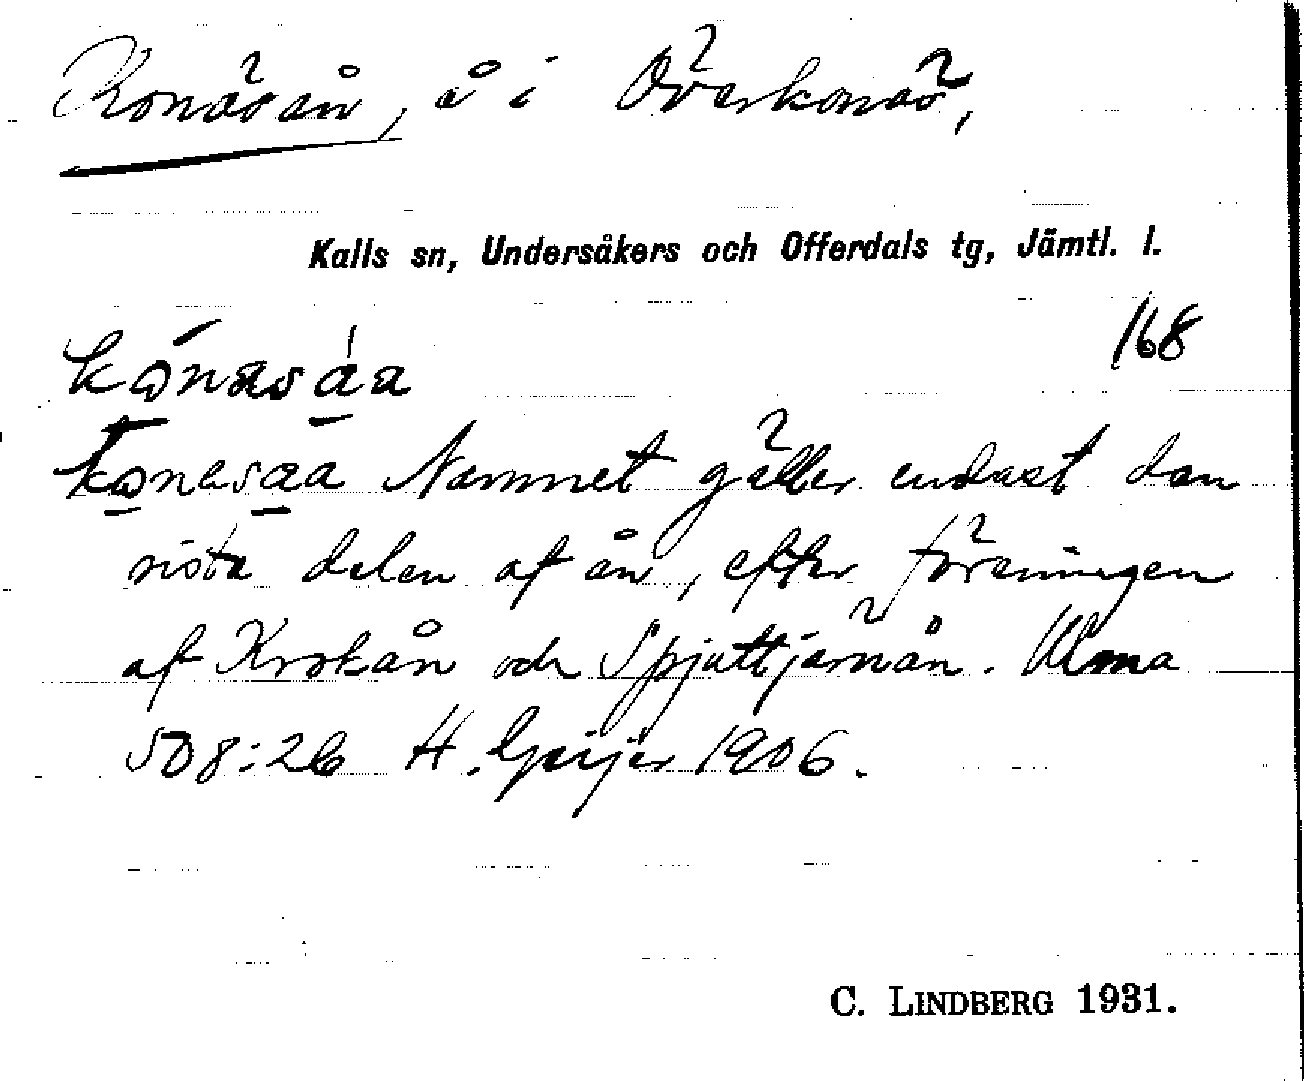 Konäsån, å i Överkonäs,
Kalls sn, Undersåkers och Offerdals tg, Jämtl. l.
168
kónasáa
konasaa Namnet gäller endast den
sista delen af ån, efter föreningen
af Krokån och Spjuttjärnån. Ulma
508:26 H. Geijer 1906.
C. LINDBERG 1931.